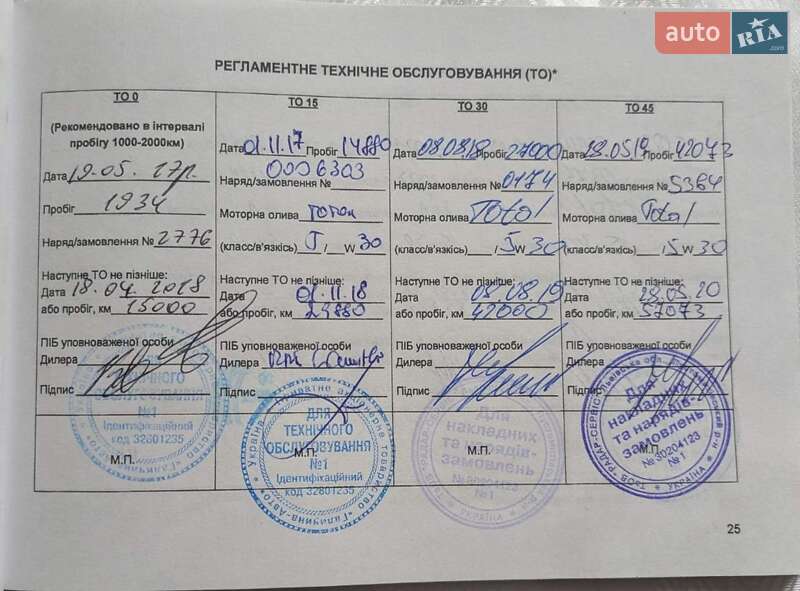 auto RIA
.com
РЕГЛАМЕНТНЕ ТЕХНІЧНЕ ОБСЛУГОВУВАННЯ (ТО)*
ТО 0
(Рекомендовано в інтервалі
пробігу 1000-2000км)
Дата 19.05.17р.
Пробіг 1934
Наряд/замовлення № 2776
Наступне ТО не пізніше:
Дата 18.04.2018
або пробіг, км 15000
ПІБ уповноваженої особи
Дилера
Підпис
М.П.
№1
Ідентифікаційний
код 32801235
ТО 15
Дата 01.11.17 Пробіг 14880
Наряд/замовлення № 0006303
Моторна олива
(клас/в'язкість) 5 / W 30
Наступне ТО не пізніше:
Дата 01.11.18
або пробіг, км 29880
ПІБ уповноваженої особи
Дилера
Підпис
М.П.
ДЛЯ
ТЕХНІЧНОГО
ОБСЛУГОВУВАННЯ
№1
Ідентифікаційний
код 32801235
Україна * Приватне акціонерне товариство «Галичина-Авто»
ТО 30
Дата 08.08.18 Пробіг 27000
Наряд/замовлення № 0174
Моторна олива Total
(класс/в'язкість) / 5 W 30
Наступне ТО не пізніше:
Дата 08.08.19
або пробіг, км 42000
ПІБ уповноваженої особи
Дилера
Підпис
М.П.
Для
накладних
та нарядів-
замовлень
№ 30204123
№1
УКРАЇНА
ТО 45
Дата 28.05.19 Пробіг 42073
Наряд/замовлення № 5364
Моторна олива Total
(класс/в'язкість) / 5 W 30
Наступне ТО не пізніше:
Дата 28.05.20
або пробіг, км 57073
ПІБ уповноваженої особи
Дилера
Підпис
М.П.
Для
накладних
та нарядів-
замовлень
№ 30204123
№1
ТзОВ "РАДАР-СЕРВІС" Львівська обл.
УКРАЇНА
25